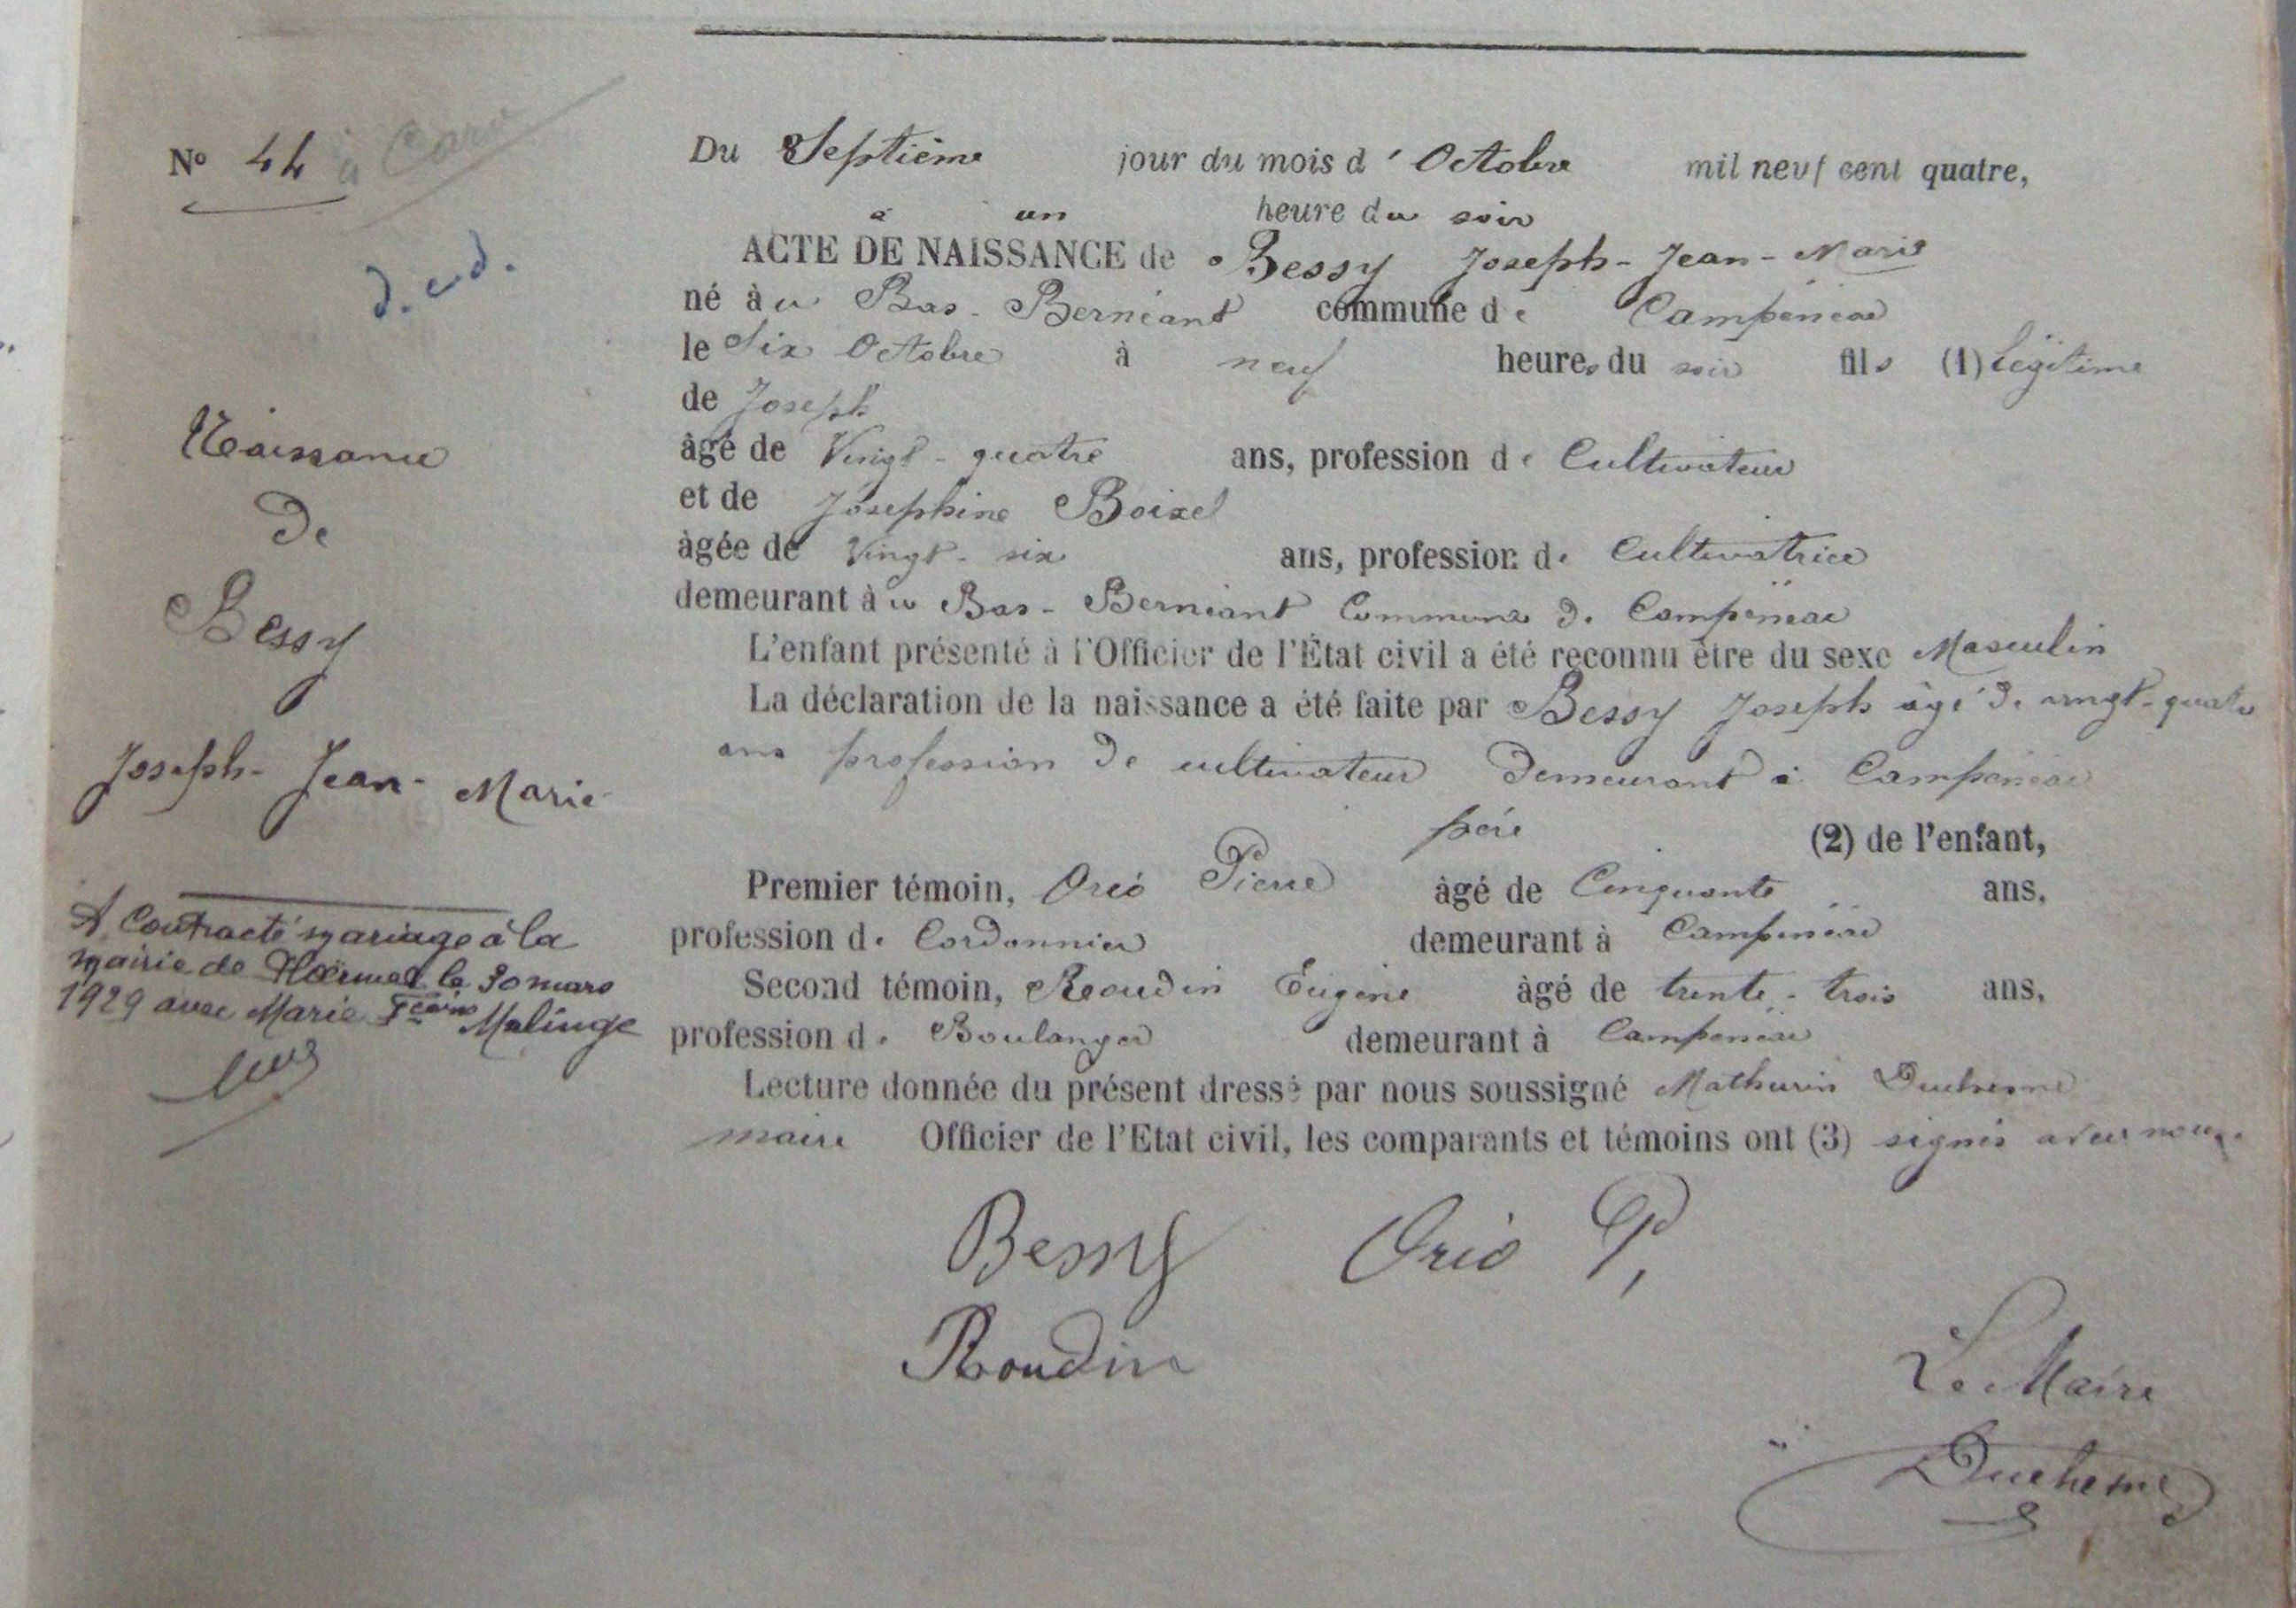 N° 44 à Caro
d. c. d.
Naissance
de
Bessy
Joseph - Jean - Marie
A Contracté mariage à la
mairie de Ploërmel le 30 mars
1929 avec Marie Fçoise Malinge
Du Septième jour du mois d' Octobre mil neuf cent quatre,
à un heure du soir
ACTE DE NAISSANCE de Bessy Joseph - Jean - Marie
né à u Bas - Bernéant commune de Campénéac
le Six Octobre à neuf heures du soir fils (1) légitime
de Joseph
âgé de Vingt - quatre ans, profession de Cultivateur
et de Joséphine Boixel
âgée de Vingt - six ans, profession de Cultivatrice
demeurant à u Bas - Bernéant Commune de Campénéac
L'enfant présenté à l'Officier de l'État civil a été reconnu être du sexe Masculin
La déclaration de la naissance a été faite par Bessy Joseph âgé de vingt - quatre
ans profession de cultivateur demeurant à Campénéac
père (2) de l'enfant,
Premier témoin, Orió Pierre âgé de Cinquante ans,
profession de Cordonnier demeurant à Campénéac
Second témoin, Roudin Eugène âgé de trente - trois ans,
profession de Boulanger demeurant à Campénéac
Lecture donnée du présent dressé par nous soussigné Mathurin Duchesne
maire Officier de l'Etat civil, les comparants et témoins ont (3) signés avec nous.
Bessy Orió P,
Roudin
Le Maire
Duchesne